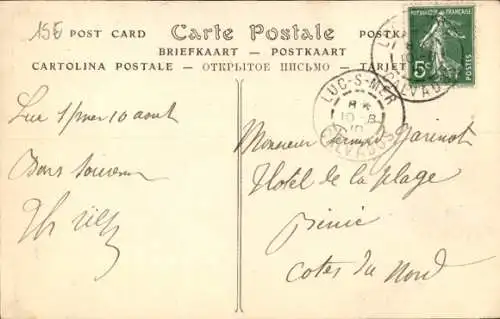 15E
POST CARD — Carte Postale — POSTKA
BRIEFKAART — POSTKAART
CARTOLINA POSTALE — ОТКРЫТОЕ ПИСЬМО — TARJET
RÉPUBLIQUE FRANÇAISE
5c
LUC-S-MER
10-8
CALVADOS
Luc s/mer 10 août
Bons souvenirs
Monsieur Garinot
Hotel de la plage
Binic
Cotes du Nord